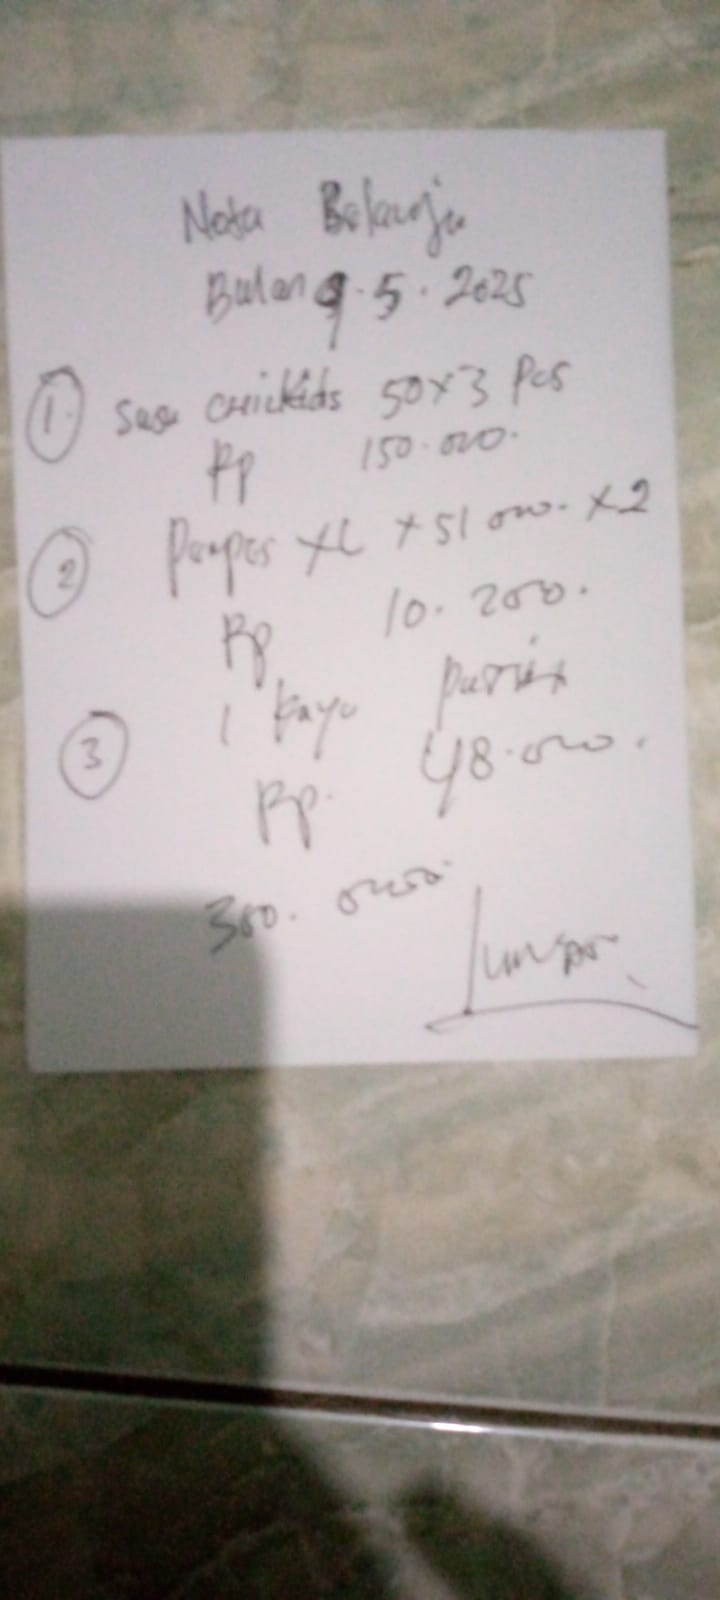 Nota Belanja
Bulan 9.5.2025
1. Susu chickids 50x3 Pcs
Rp 150.000.
2 Pampes XL x 51 000. x2
Rp 10.200.
3 1 kayu
Rp. 48.000.
300.